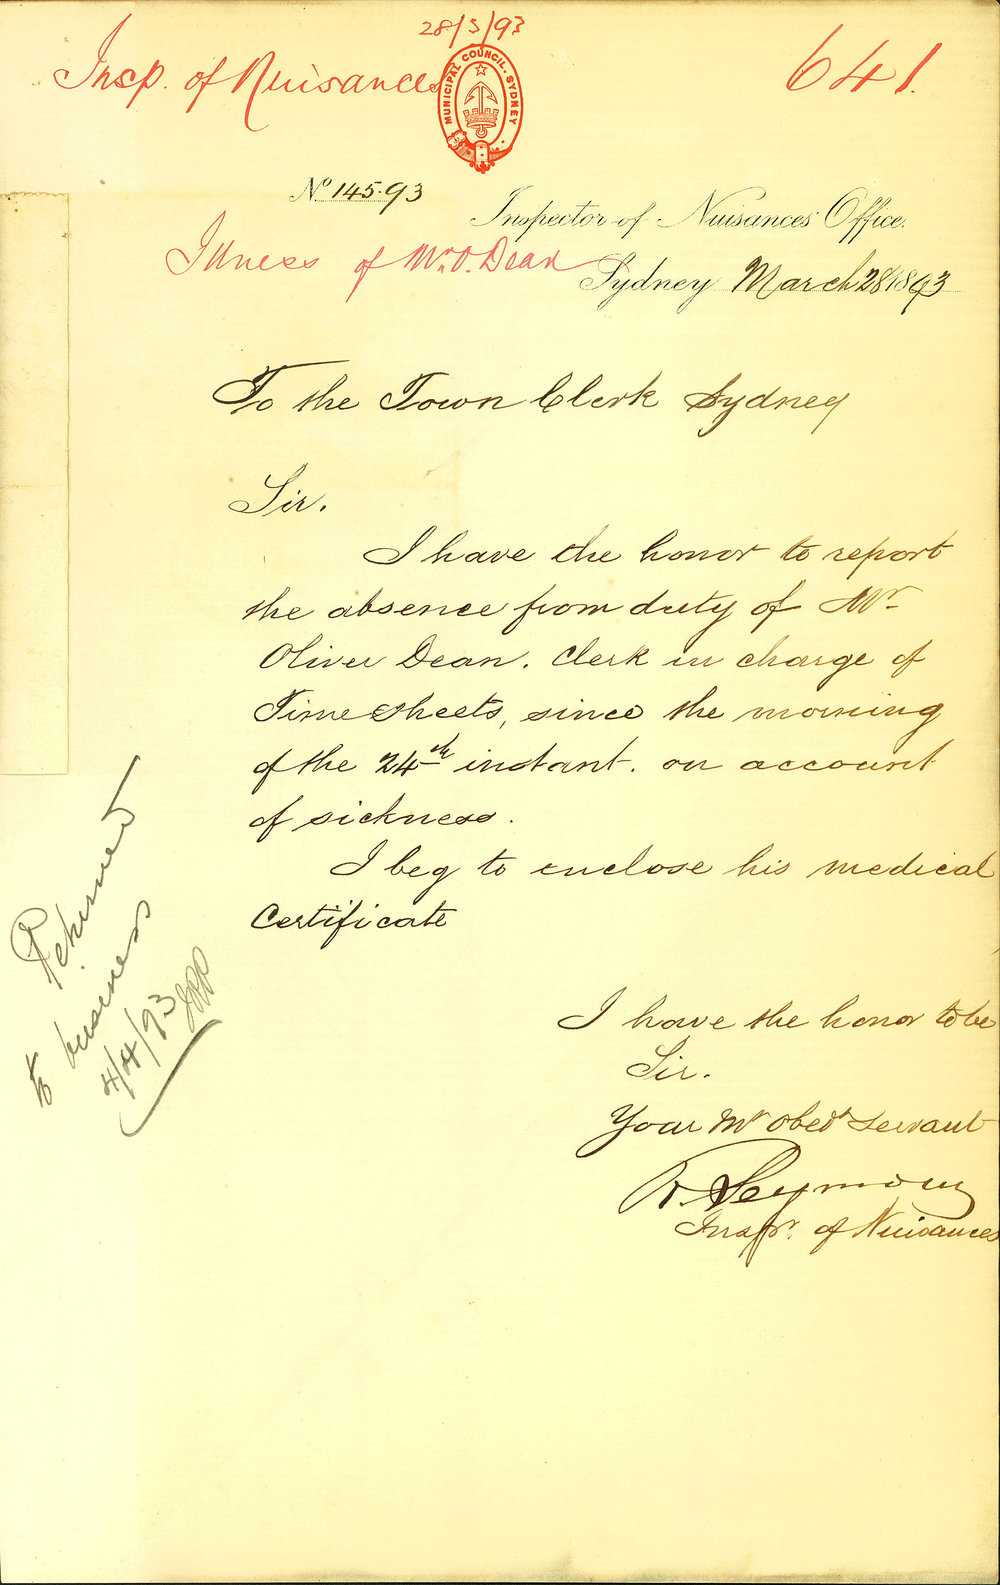 28/3/93
Insp. of Nuisances
641.
MUNICIPAL COUNCIL. SYDNEY
No 145.93
Inspector of Nuisances Office.
Illness of Mr. O. Dean
Sydney March 28 1893
To the Town Clerk Sydney
Sir.
I have the honor to report
the absence from duty of Mr
Oliver Dean. Clerk in charge of
Time Sheets, since the morning
of the 24th instant. on account
of sickness.
I beg to enclose his medical
Certificate
Returned
to business
4/4/93
I have the honor to be
Sir.
Your Mt Obedt Servant
R. Seymour
Inspr. of Nuisances